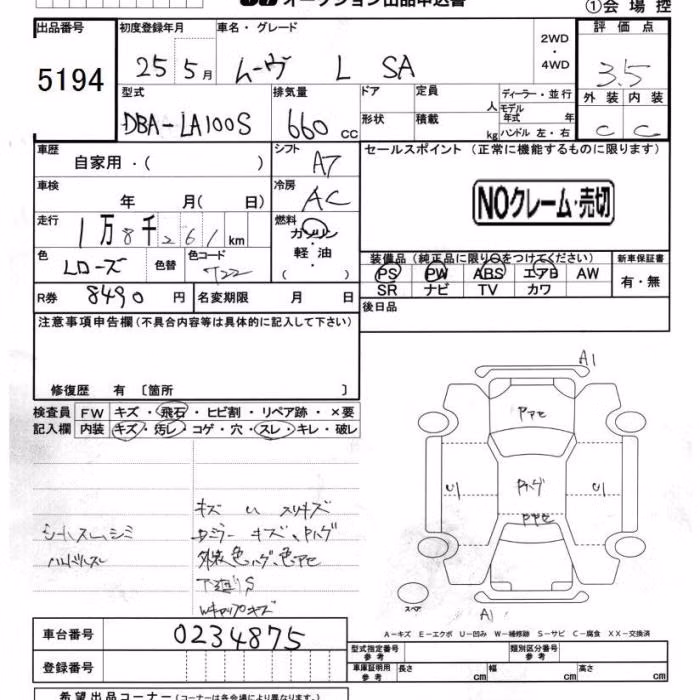 オークション出品申込書
①会場控
出品番号
5194
初度登録年月
25 5月
車名・グレード
ムーヴ L SA
2WD
・
4WD
評価点
3.5
外装 内装
C C
型式
DBA-LA100S
排気量
660 cc
ドア
定員
人
形状
積載
kg
ディーラー・並行
モデル
年式 年
ハンドル 左・右
車歴
自家用・( )
シフト
A7
車検
年 月( 日)
冷房
AC
走行
1万8千261km
燃料
ガソリン
・
軽油
・
( )
色
Lローズ
色替
色コード
T22
R券
8490円
名変期限 月 日
セールスポイント(正常に機能するものに限ります)
NOクレーム・売切
装備品(純正品に限り○をつけてください)
新車保証書
PS PW ABS エアB AW
SR ナビ TV カワ
有・無
後日品
注意事項申告欄(不具合内容等は具体的に記入して下さい)
修復歴 有〔箇所 〕
検査員
記入欄
FW キズ・飛石・ヒビ割・リペア跡・×要
内装 キズ・汚レ・コゲ・穴・スレ・キレ・破レ
キズ U スリキズ
シートスレ シミ
ハンドルスレ
Dミラー キズ、Pハゲ
外装色ハゲ、色アセ
下廻りS
Wキャップキズ
A1
Pアセ
U1
Pハゲ
U1
Pアセ
スペア
A1
A-キズ E-エクボ U-凹み W-補修跡 S-サビ C-腐食 XX-交換済
車台番号
0234875
登録番号
型式指定番号
参考
類別区分番号
参考
車庫証明用
参考
長さ cm
幅 cm
高さ cm
希望出品コーナー(コーナーは各会場により異なります。)